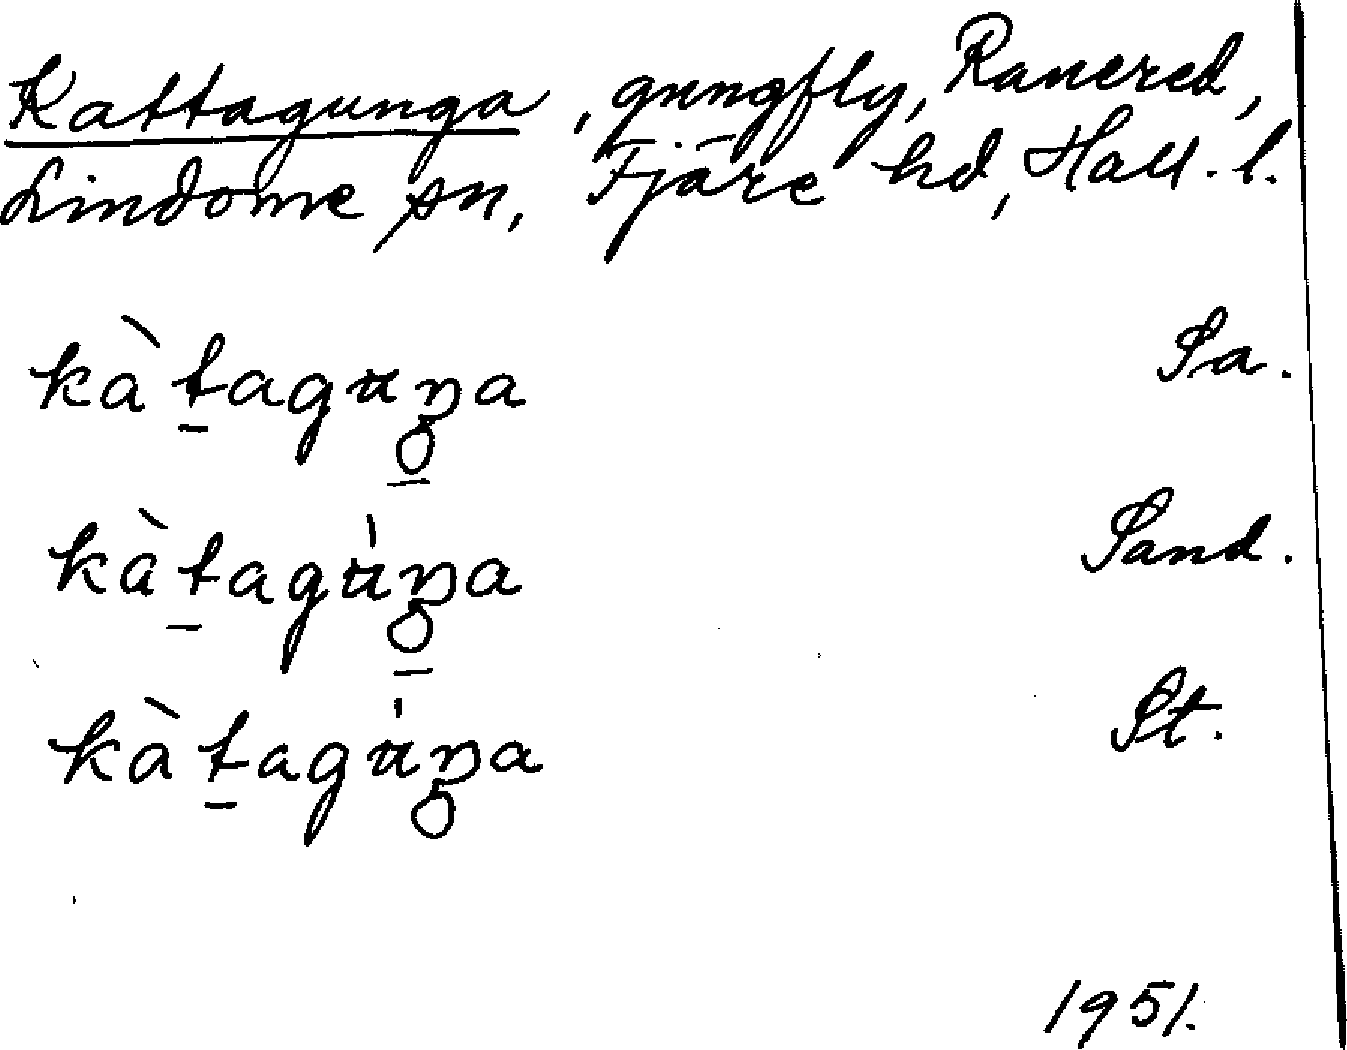 Kattagunga, gungfly, Ranered,
Lindome sn, Fjäre hd, Hall. l.
kàt̠aguŋ̠a Sa.
kàt̠agu̍ŋ̠a Sand.
kàt̠agu̍ŋa St.
1951.